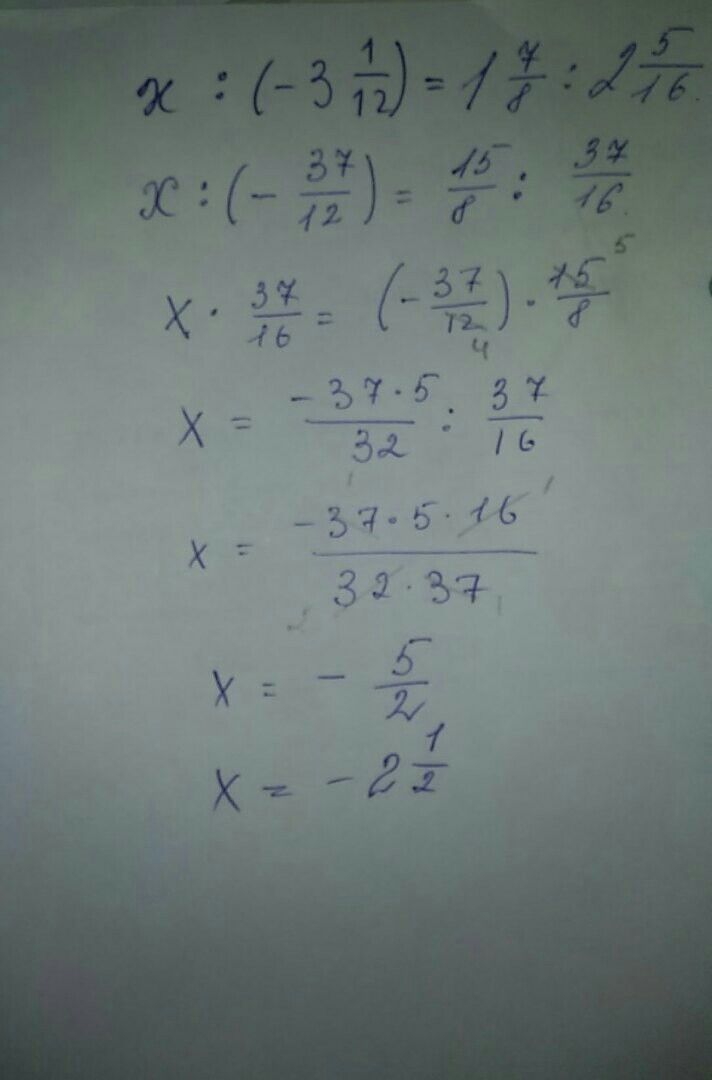 x : (-3 1/12) = 1 7/8 : 2 5/16.
x : (- 37/12) = 15/8 : 37/16.
x · 37/16 = (- 37/12) · 15/8 5
4
x = -37·5/32 : 37/16
x = -37·5·16/32·37
x = - 5/2
x = -2 1/2